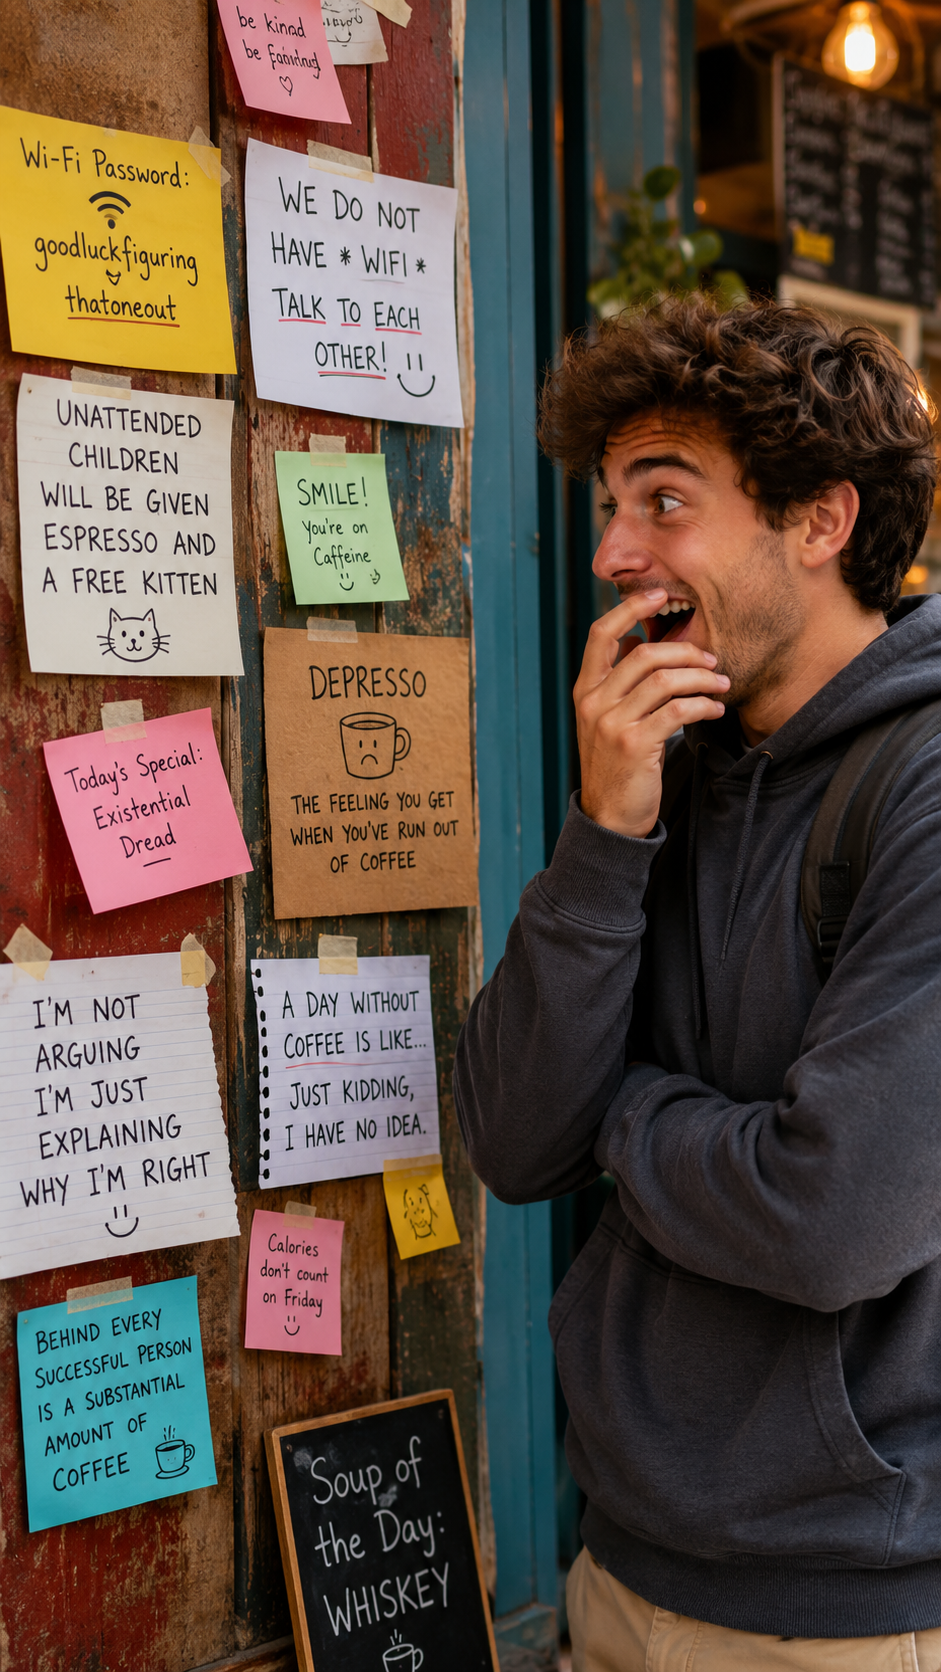 be kind
Wi-Fi Password:
goodluckfiguring
thatoneout
WE DO NOT
HAVE * WIFI *
TALK TO EACH
OTHER!
UNATTENDED
CHILDREN
WILL BE GIVEN
ESPRESSO AND
A FREE KITTEN
SMILE!
You're on
Caffeine
DEPRESSO
THE FEELING YOU GET
WHEN YOU'VE RUN OUT
OF COFFEE
Today's Special:
Existential
Dread
I'M NOT
ARGUING
I'M JUST
EXPLAINING
WHY I'M RIGHT
A DAY WITHOUT
COFFEE IS LIKE...
JUST KIDDING,
I HAVE NO IDEA.
Calories
don't count
on Friday
BEHIND EVERY
SUCCESSFUL PERSON
IS A SUBSTANTIAL
AMOUNT OF
COFFEE
Soup of
the Day:
WHISKEY